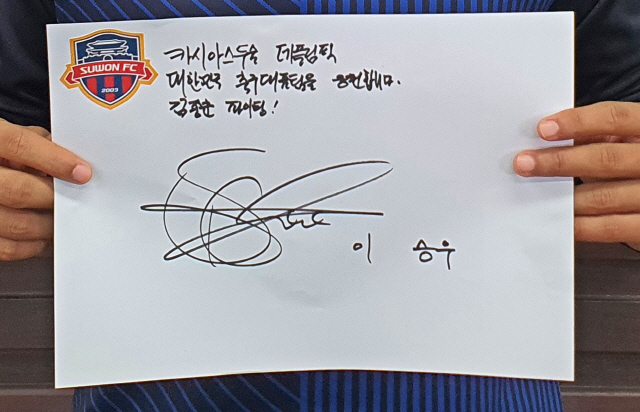 SUWON FC
2003
카시아스두술 데플림픽
대한민국 축구대표팀을 응원합니다.
김종훈 파이팅!
이 승우